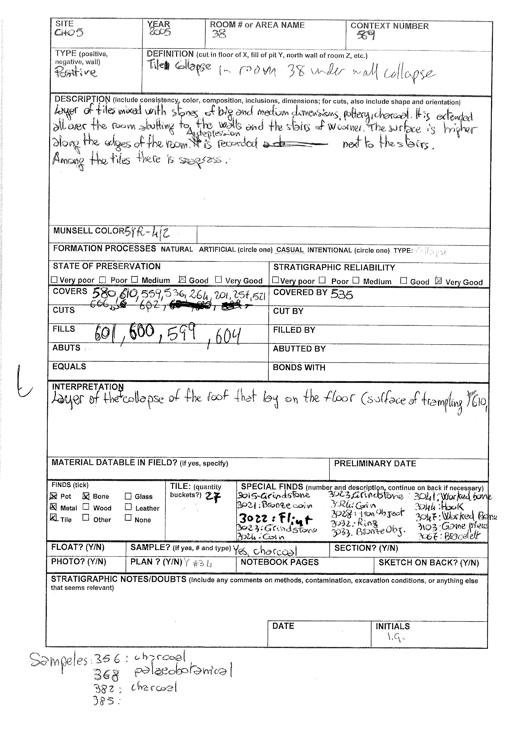 SITE
CH05
YEAR
2005
ROOM # or AREA NAME
38
CONTEXT NUMBER
589
TYPE (positive, negative, wall)
Positive
DEFINITION (cut in floor of X, fill of pit Y, north wall of room Z, etc.)
Tile Collapse in room 38 under wall collapse
DESCRIPTION (include consistency, color, composition, inclusions, dimensions; for cuts, also include shape and orientation)
Layer of tiles mixed with stones of big and medium dimensions, pottery, charcoal. It is extended
all over the room abutting to the walls and the stairs of W corner. The surface is higher
along the edges of the room. A depression is recorded next to the stairs.
Among the tiles there is
MUNSELL COLOR 5YR-4/2
FORMATION PROCESSES NATURAL ARTIFICIAL (circle one) CASUAL INTENTIONAL (circle one) TYPE: collapse
STATE OF PRESERVATION
Very poor Poor Medium Good Very Good
STRATIGRAPHIC RELIABILITY
Very poor Poor Medium Good Very Good
COVERS 580, 610, 559, 536, 264, 201, 256, 521
602,
COVERED BY 535
CUTS
CUT BY
FILLS 601, 600, 599, 604
FILLED BY
ABUTS
ABUTTED BY
EQUALS
BONDS WITH
INTERPRETATION
Layer of the collapse of the roof that lay on the floor (surface of trampling) 610,
MATERIAL DATABLE IN FIELD? (if yes, specify)
PRELIMINARY DATE
FINDS (tick)
Pot Bone Glass
Metal Wood Leather
Tile Other None
TILE: (quantity buckets?) 27
SPECIAL FINDS (number and description, continue on back if necessary)
3015-Grindstone
3021: Bronze coin
3022: Flint
3023: Grindstone
3024: Coin
3023: Grindstone
3024: Coin
3028: Iron Object
3032: Ring
3033: Bronze Obj.
3041: Worked bone
3044: Hook
3047: Worked Bone
3103: Game piece
3067: Bracelet
FLOAT? (Y/N)
SAMPLE? (if yes, # and type) Yes, charcoal
SECTION? (Y/N)
PHOTO? (Y/N)
PLAN ? (Y/N) Y #34
NOTEBOOK PAGES
SKETCH ON BACK? (Y/N)
STRATIGRAPHIC NOTES/DOUBTS (Include any comments on methods, contamination, excavation conditions, or anything else that seems relevant)
DATE
INITIALS
I.G.
Sampeles: 356: charcoal
368 palaeobotanical
382: charcoal
385: